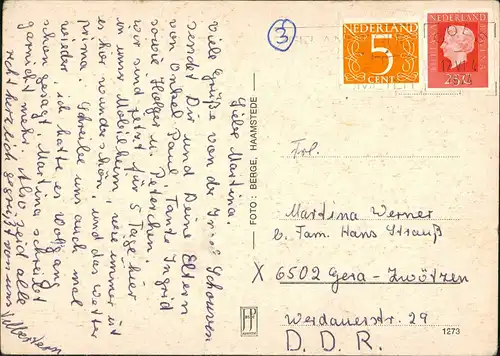 Liebe Martina.
Viele Grüße von der Insel Schouwen
sendet Dir und Deine Eltern
von Onkel Paul, Tante Ingrid
sowie Holger u. Peterchen.
wir sind jetzt für 5 Tage hier
in unser Mobilheim, wie immer ist
es hier wunderschön, und das Wetter
prima. Schreibe uns auch mal
wieder ich hatte es Wolfgang
schon gesagt Martina schreibt
garnicht mehr. Also. Seid alle
recht herzlich gegrüßt von uns
FOTO: BERGE, HAAMSTEDE
3
NEDERLAND
5
CENT
NEDERLAND
Frl.
Martina Werner
b. Fam. Hans Strauß
X 6502 Gera-Zwötzen
Werdauerstr. 29
D.D.R.
1273